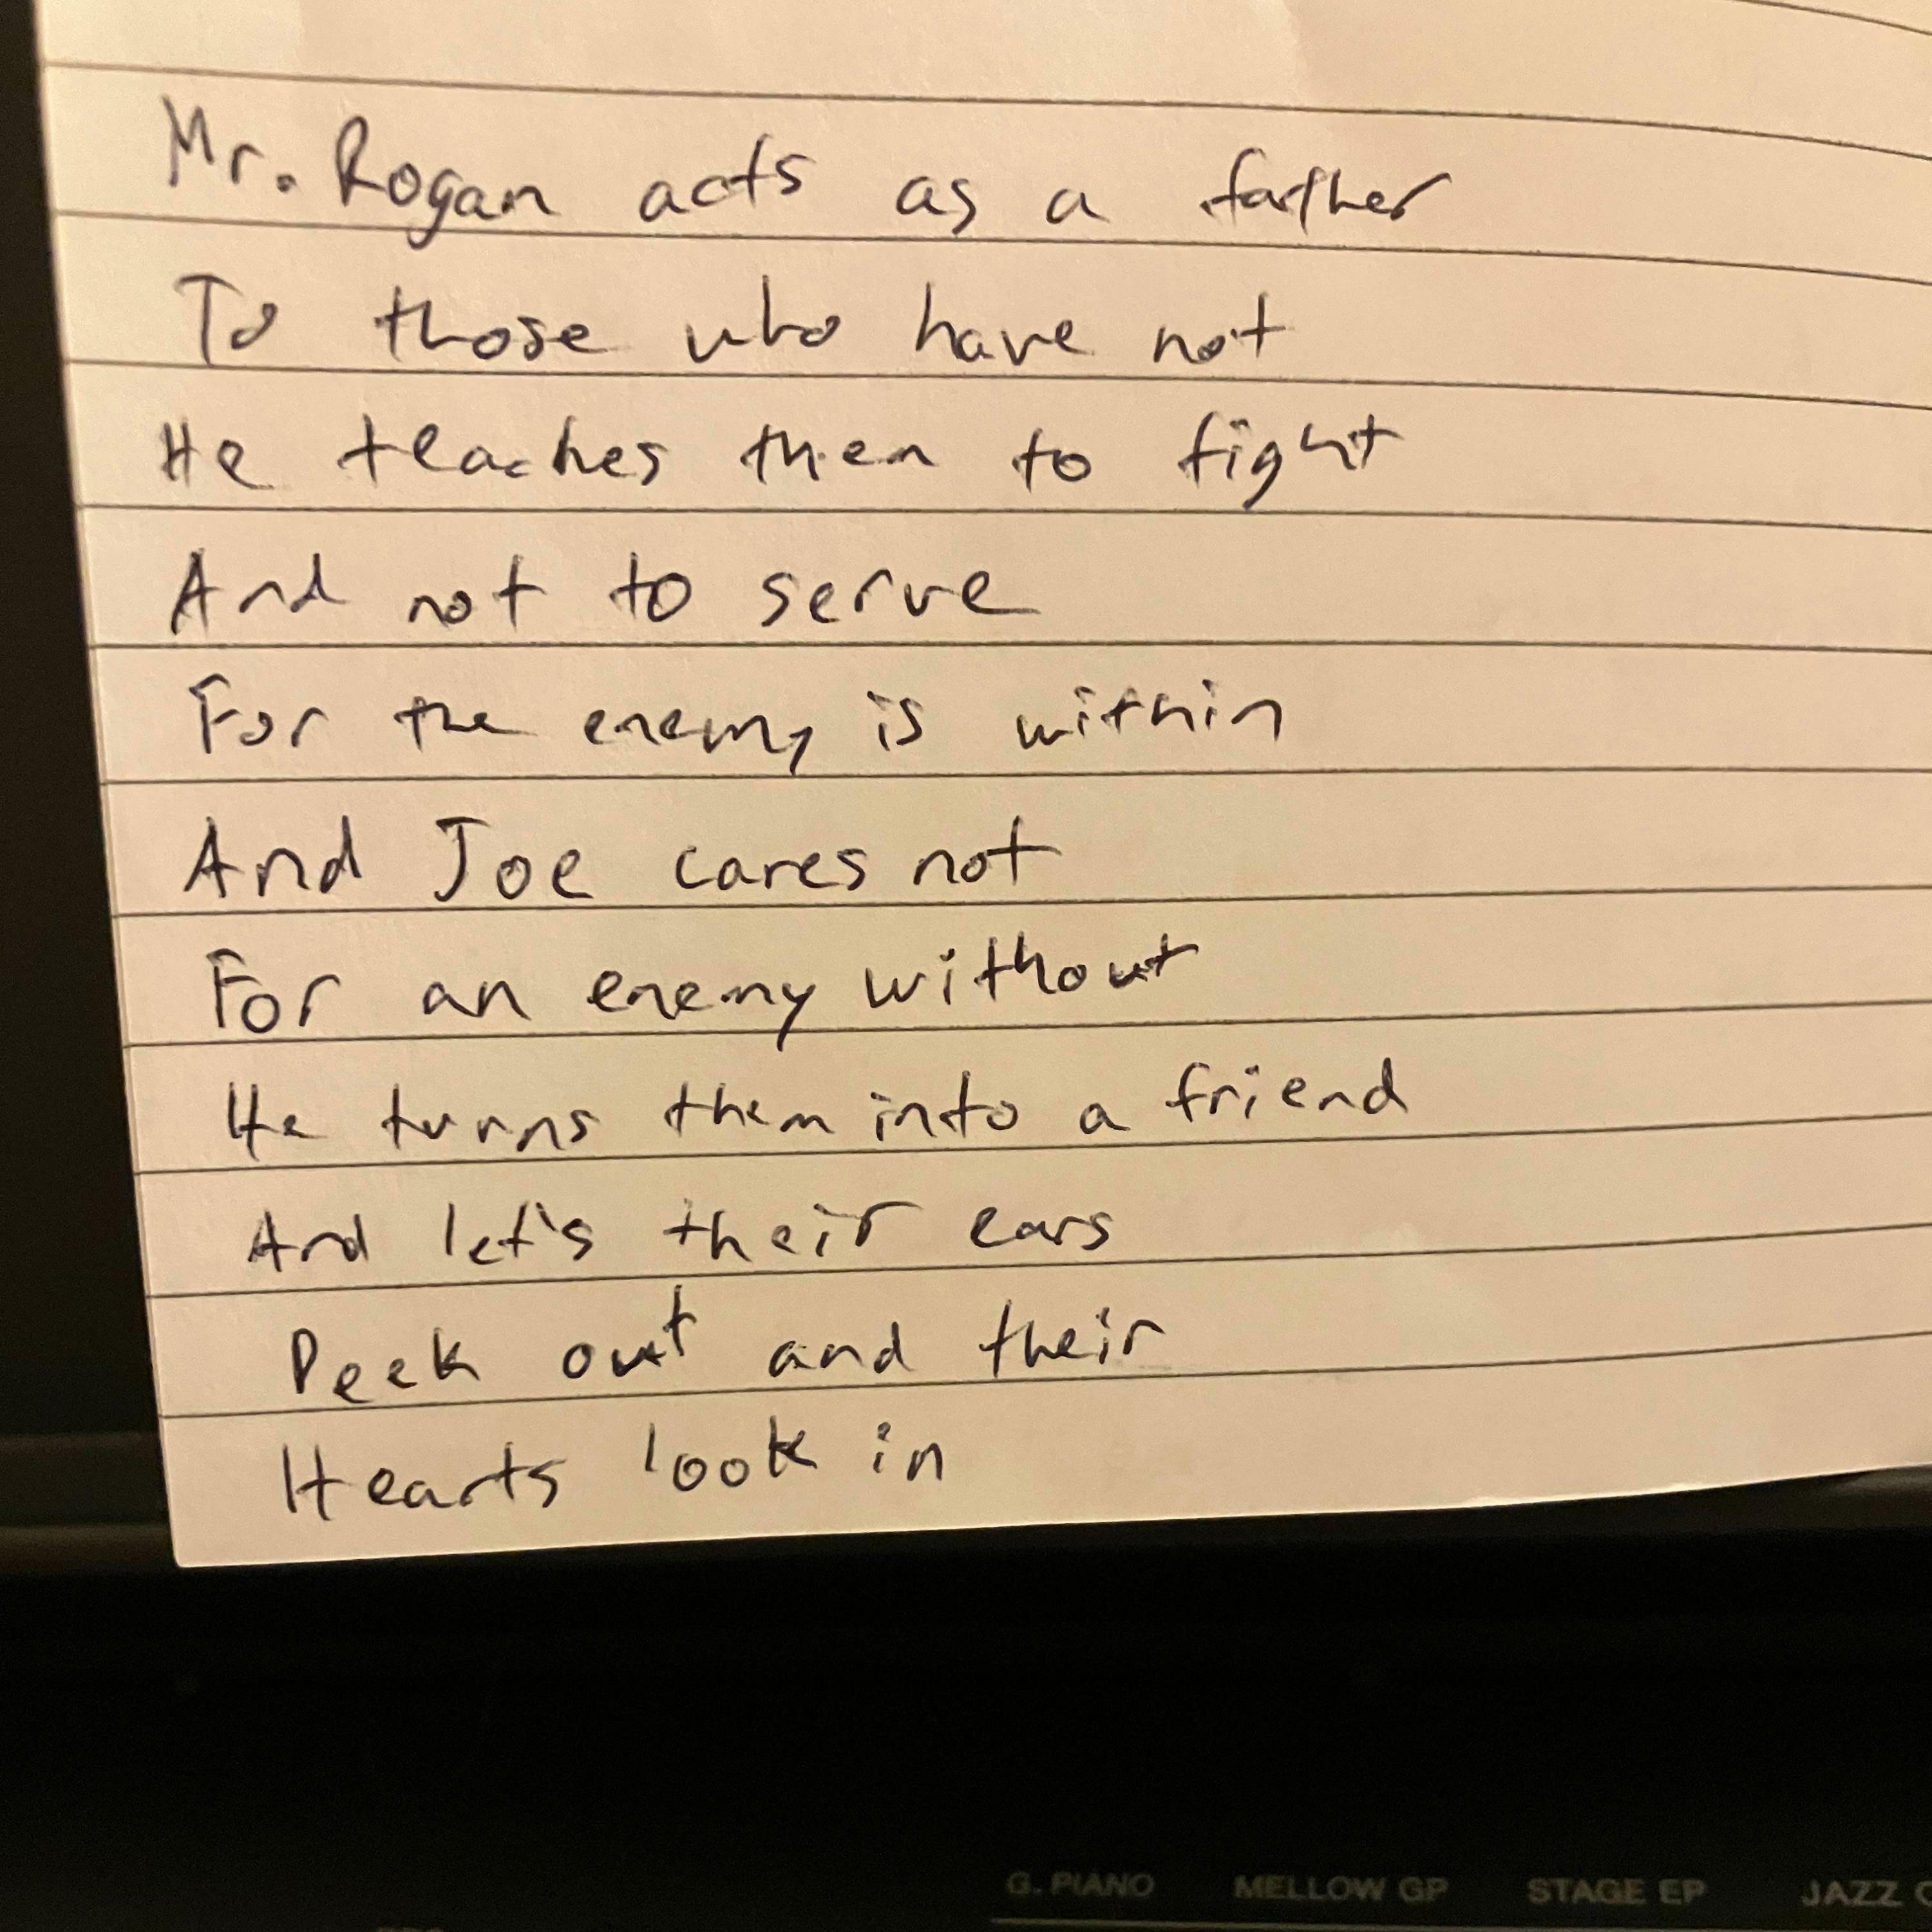 Mr. Rogan acts as a father
To those who have not
He teaches them to fight
And not to serve
For the enemy is within
And Joe cares not
For an enemy without
He turns them into a friend
And let's their ears
Peek out and their
Hearts look in
G. PIANO MELLOW GP STAGE EP JAZZ